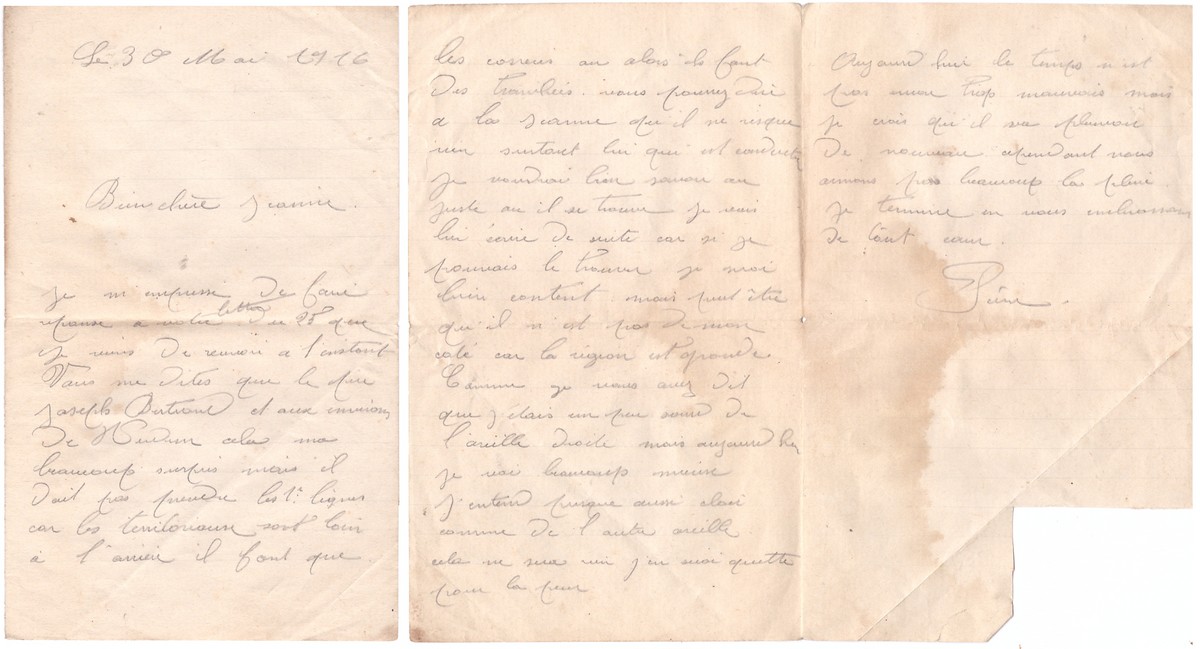 Le 30 Mai 1916
Bien chère Jeanne.
Je m'empresse de faire
réponse a votre lettre du 25 que
je viens de recevoir a l'instant
Vous me dites que le père
Joseph Bertrand et aux environs
de Verdun cela ma
beaucoup surpris mais il
doit pas prendre les 1e lignes
car les territoriaux sont loin
à l'arrière il font que
les corvées au alors ils font
des tranchées. vous pourrez dire
a la Jeanne qu'il ne risque
rien surtout lui qui est conducte
Je voudrai bien savoir au
juste ou il se trouve je vais
lui écrire de suite car si je
pouvais le trouver je serai
bien content mais peut être
qu'il n'est pas de mon
coté car la région est grande.
Comme je vous avez dit
que j'étais un peu sourd de
l'oreille droite mais aujourd hui
je vai beaucoup mieux
j'entend presque aussi clair
comme de l'autre oreille
cela ne sera rien j'en serai quitte
pour la peur
Aujourd hui le temps n'est
pas non trop mauvais mais
je crois qu'il va pleuvoir
de nouveau cependant nous
aimons pas beaucoup la pluie.
Je termine en vous embrassant
de tout cœur.